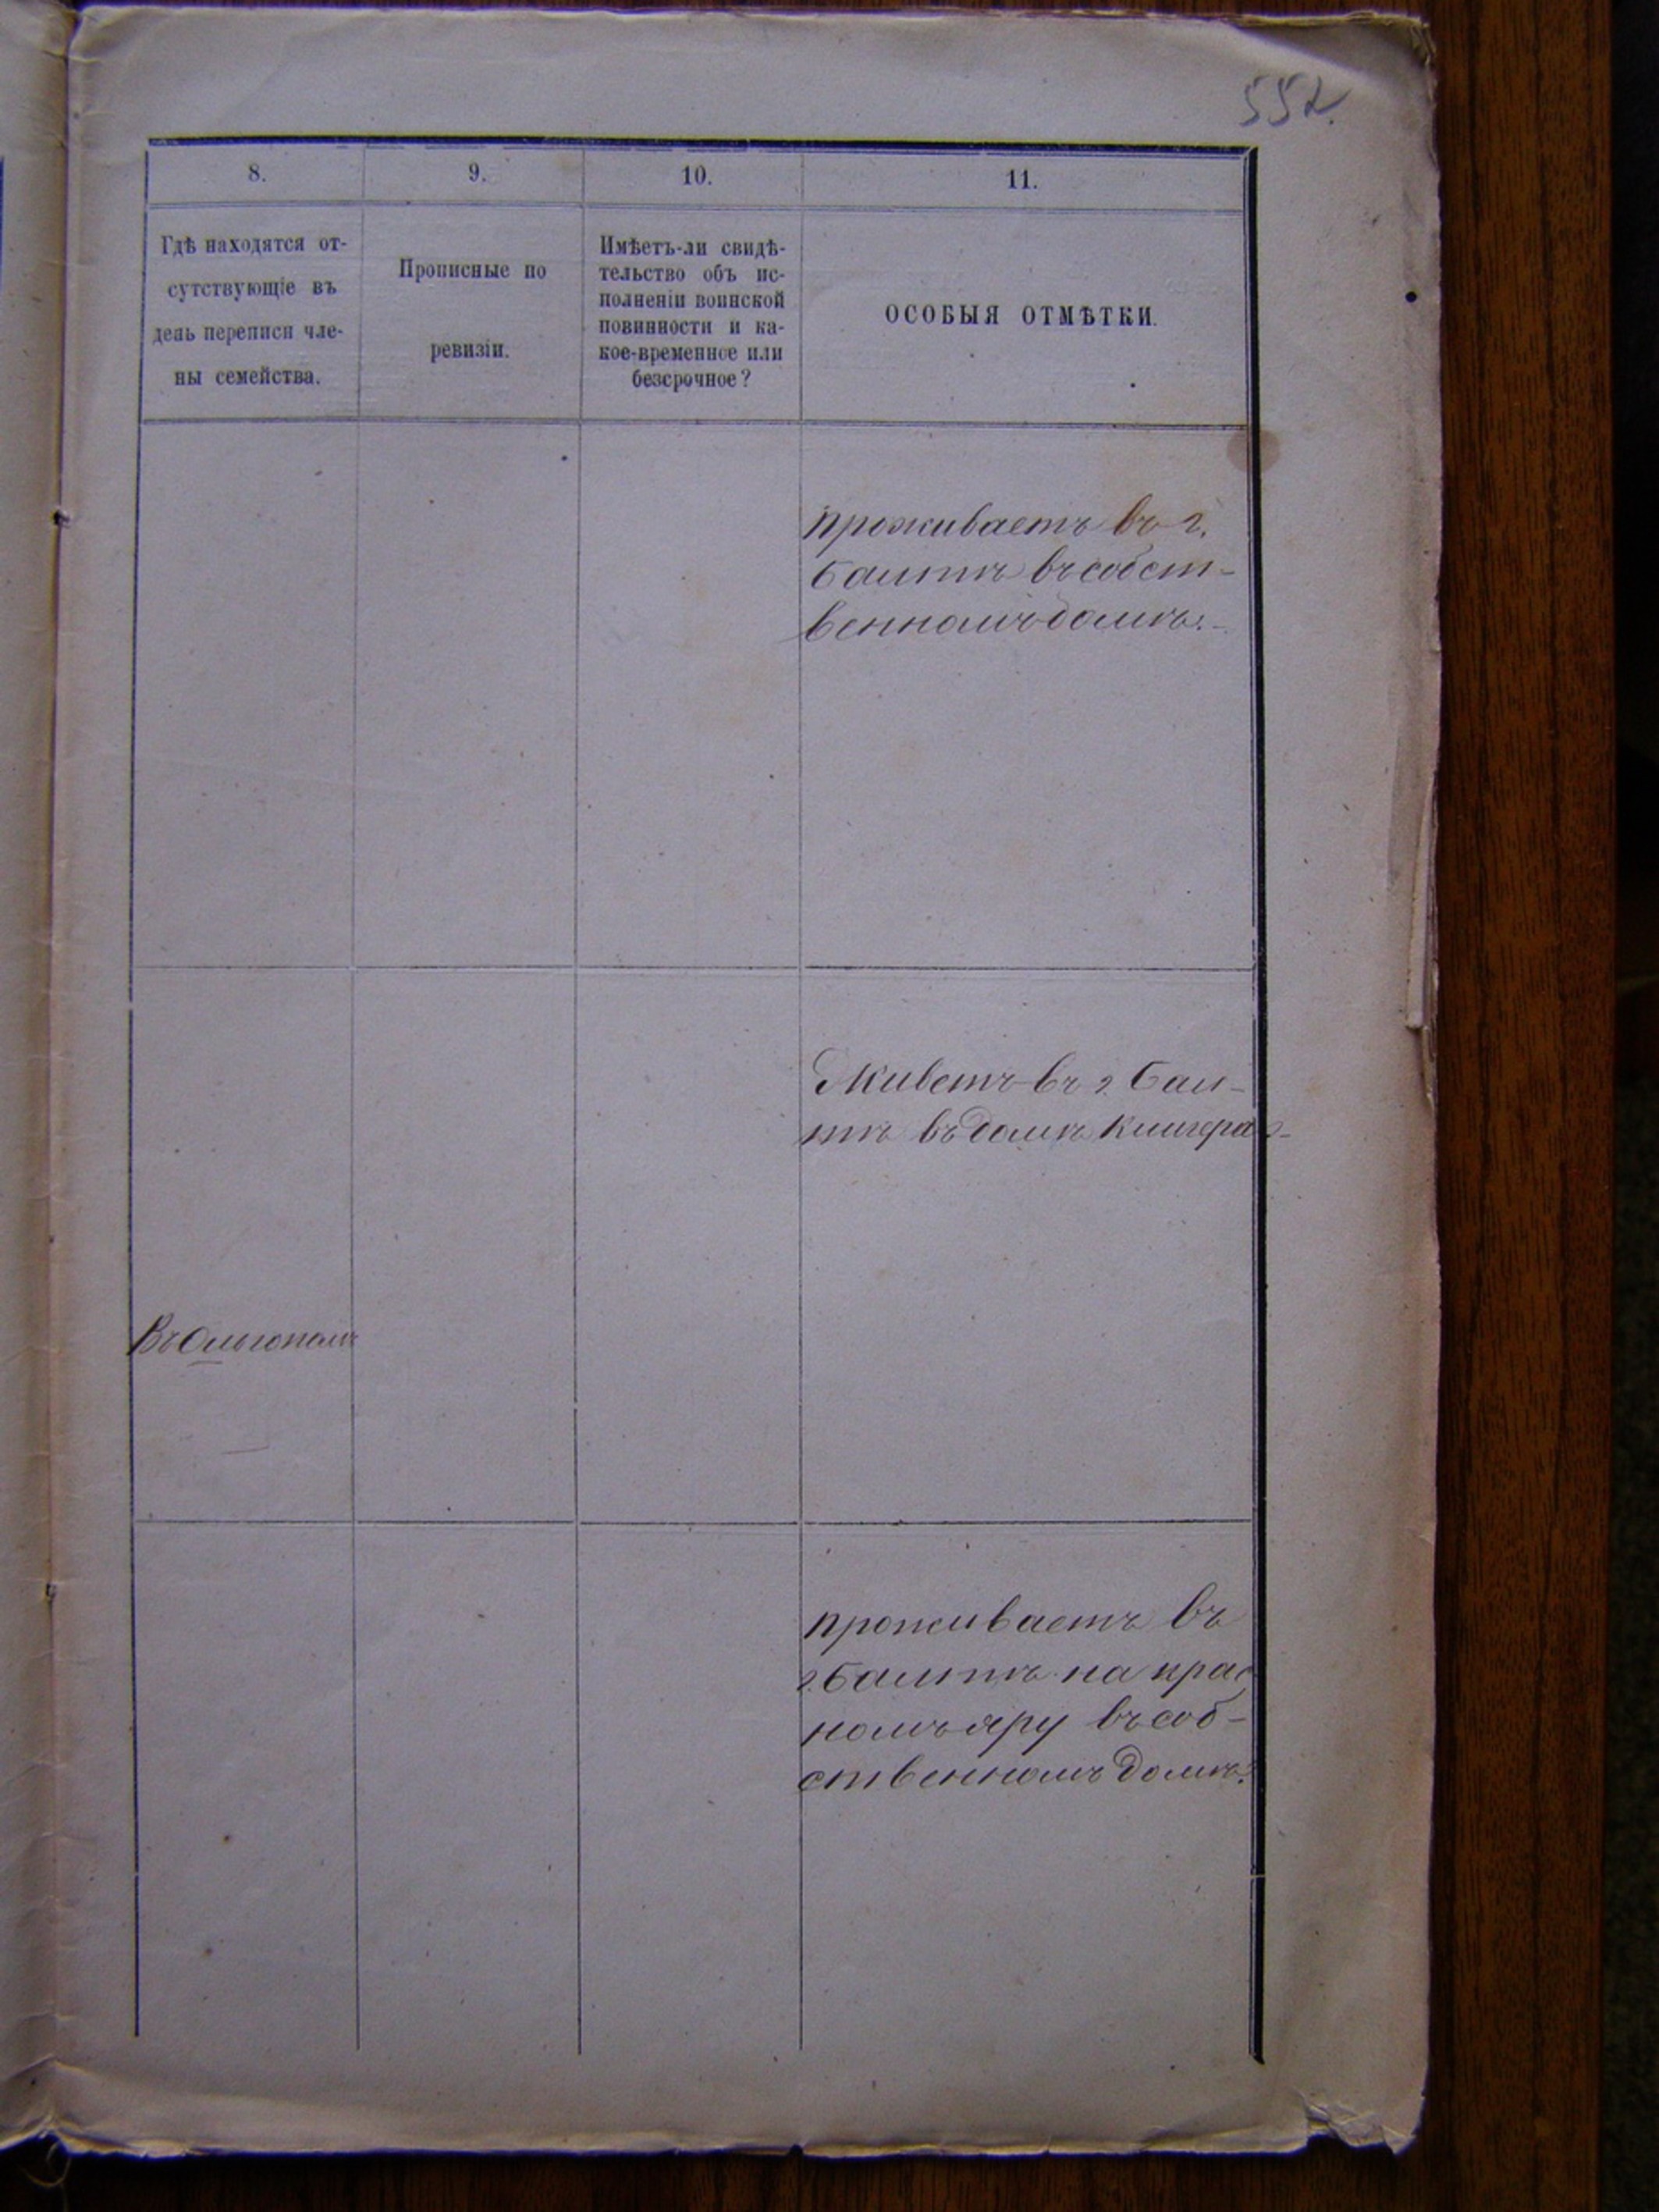 552.
8.
9.
10.
11.
Гдѣ находятся от-
сутствующіе въ
день переписи чле-
ны семейства.
Прописные по
ревизіи.
Имѣетъ-ли свидѣ-
тельство объ ис-
полненіи воинской
повинности и ка-
кое-временное или
безсрочное?
ОСОБЫЯ ОТМѢТКИ.
проживаетъ въ г.
Балтѣ въ собст-
венномъ домѣ.-
Живетъ въ г. Бал-
тѣ въ домѣ
Въ Ольгополѣ
проживаетъ въ
г. Балтѣ на крас
номъ яру въ соб-
ственномъ домѣ.